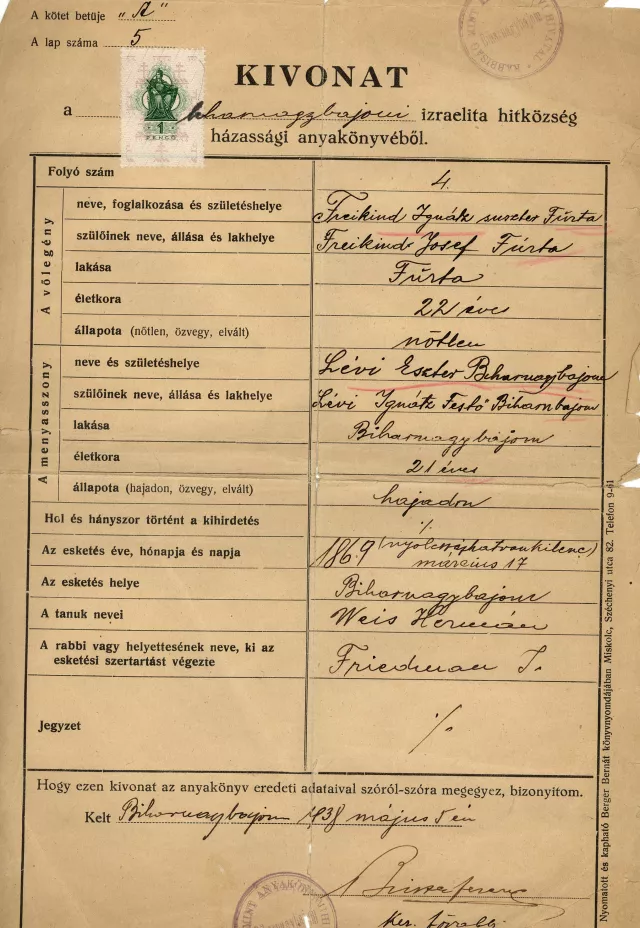 A kötet betüje "A"
A lap száma 5
1
PENGŐ
KIVONAT
a biharnagybajomi izraelita hitközség
házassági anyakönyvéből.
Folyó szám 4.
A vőlegény
neve, foglalkozása és születéshelye Freikind Ignátz suszter Fúrta
szülőinek neve, állása és lakhelye Freikind Josef Fúrta
lakása Fúrta
életkora 22 éves
állapota (nőtlen, özvegy, elvált) nőtlen
A menyasszony
neve és születéshelye Lévi Eszter Biharnagybajom
szülőinek neve, állása és lakhelye Lévi Ignátz Festő Biharnbajom
lakása Biharnagybajom
életkora 21 éves
állapota (hajadon, özvegy, elvált) hajadon
Hol és hányszor történt a kihirdetés ·/.
Az esketés éve, hónapja és napja 1869 (nyolcszázhatvankilenc)
március 17
Az esketés helye Biharnagybajom
A tanuk nevei Weis Hermán
A rabbi vagy helyettesének neve, ki az
esketési szertartást végezte Friedman I.
Jegyzet ·/.
Hogy ezen kivonat az anyakönyv eredeti adataival szóról-szóra megegyez, bizonyitom.
Kelt Biharnagybajom 1938 május 5 én
Ker. főrabbi
Nyomatott és kapható Berger Bernát könyvnyomdájában Miskolc, Széchenyi utca 82. Telefon 9-61